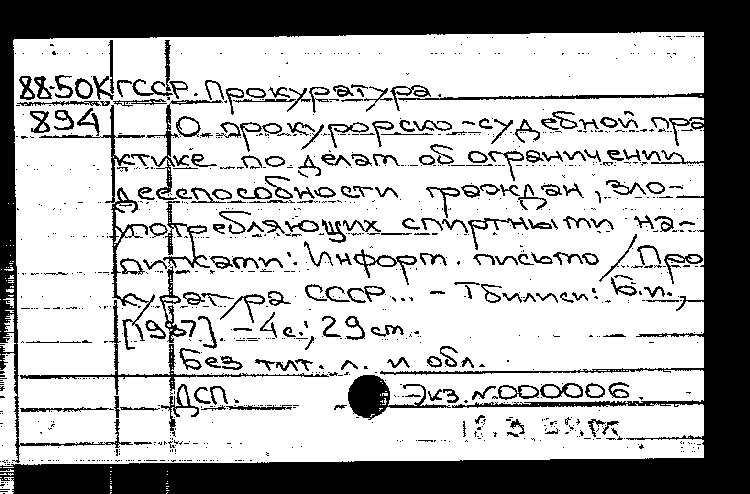 88-50К ГССР. Прокуратура.
894 О прокурорско-судебной пра
ктике по делам об ограничении
дееспособности граждан, зло-
употребляющих спиртными на-
питками: Информ. письмо / Про
куратура СССР... - Тбилиси: Б.и.,
[1987]. - 4 с.; 29 см.
Без тит. л. и обл.
ДСП. Экз. N000006.